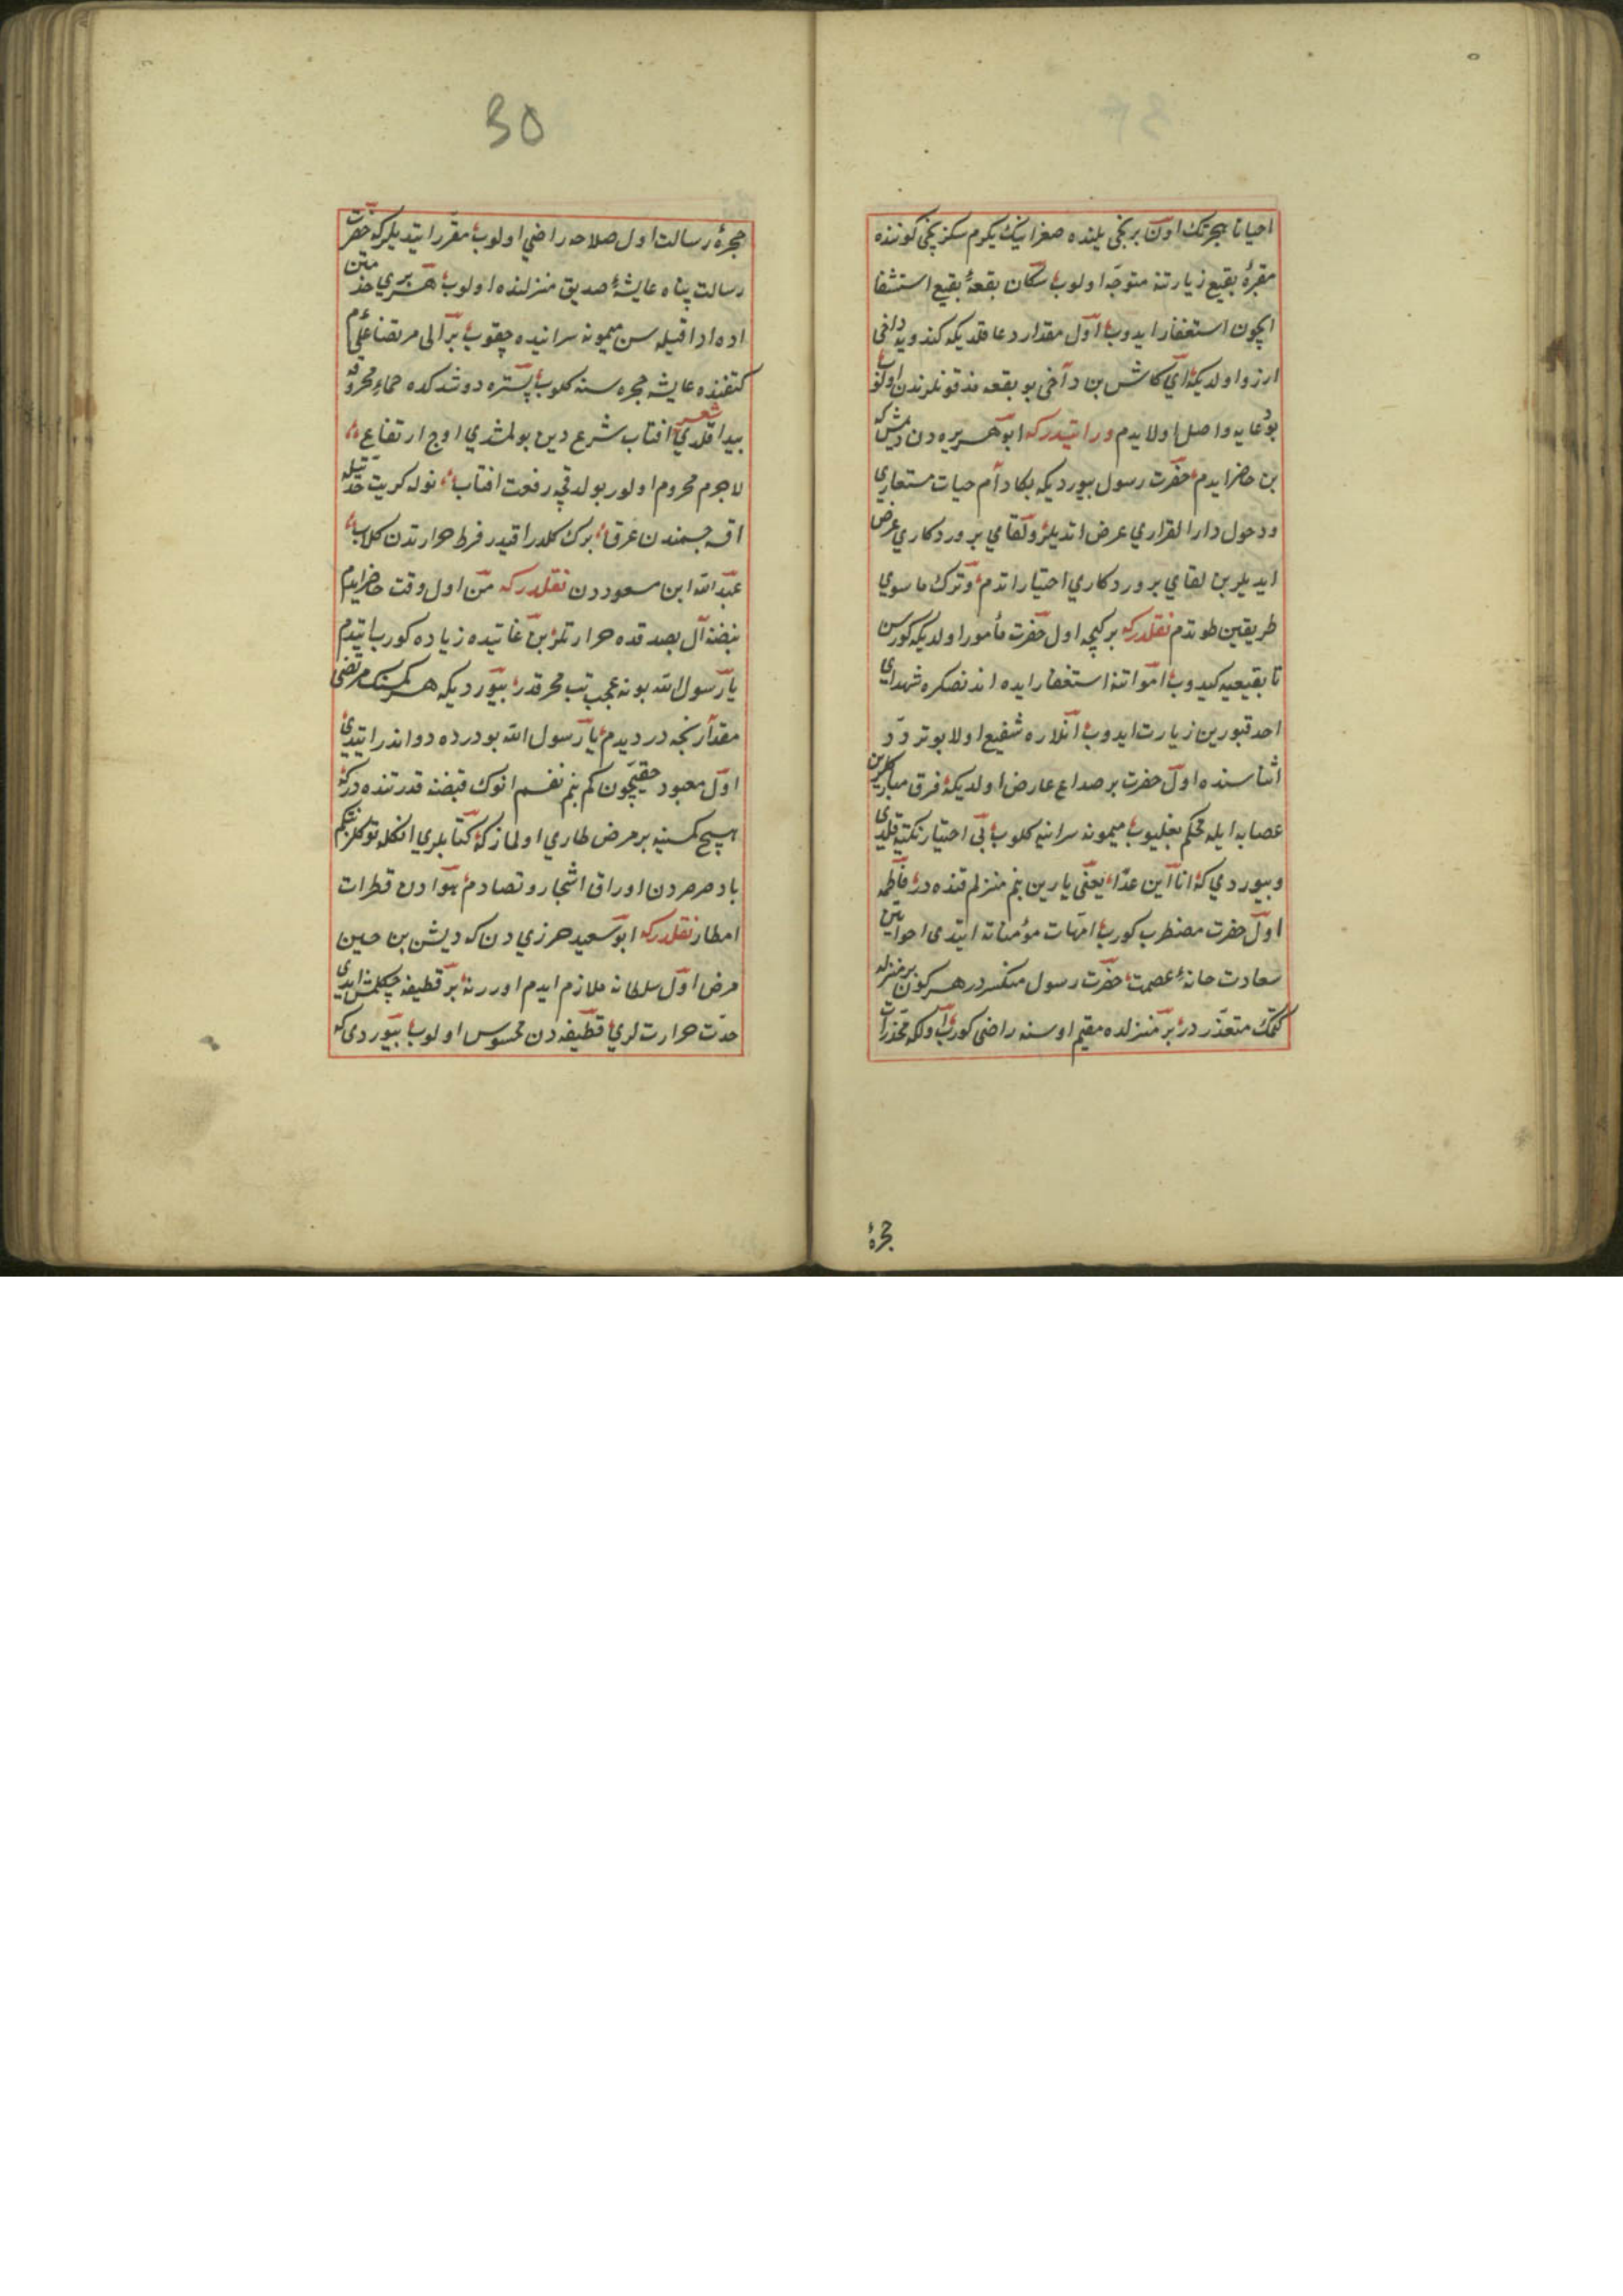 احیانا هجرتك اون برنجی یلنده صفرانیك یکرم سکزنجی کوننده
مقبرۀ بقیع زیارتنه متوجه اولوب سکان بقعۀ بقیع استشفا
ایچون استغفار ایدوب اول مقدار دعا قلدیکه کندویه داخی
ارزو اولدیکه ای کاش بن داخی بو بقعه مدفونلرندن اولوب
بو دعایه واصل اولایدم ورایتدرکه ابو هریره دن دیمش که
بن حاضر ایدم حضرت رسول بیوردیکه بکا دآم حیات مستعاری
ودخول دار القراری عرض اتدیلر ولقای پروردکاری عرض
ایدیلر بن لقای پروردکاری اختیار اتدم وترك ما سوی
طریقین طوتدم نقلدرکه بر کیجه اول حضرت مأمور اولدیکه کورسن
تا بقیعیه کیدوب امواتنه استغفار ایده اندنصکره شهدای
احد قبورین زیارت ایدوب انلاره شفیع اولا بو تردد
اثناسنده اول حضرت بر صداع عارض اولدیکه فرق مبارکرین
عصابه ایله محکم بغلیوب میمونه سرانیه کلوب بی اختیار تکیه قلدی
وبیوردی که انا این غدا یعنی یارین بنم منزلم قنده در فاطمه
اول حضرت مضطرب کورب امهات مؤمناته ایتدی احوالین
سعادت خانۀ عصمت حضرت رسول منکسردر هر کون بر منزله
کتمك متعذردر بر منزلده مقیم اوسنه راضی کورب اولکه مخدرات
حجرۀ
30
حجرۀ رسالت اول صلاحه راضی اولوب مقرر ایتدیلرکه حضرت
رسالت پناه عایشۀ صدیق منزلنده اولوب هر بری خدمتن
اده ادا قیله سن میمونه سرانیده چقوب بر الی مرتضا علی
کتفنده عایشه حجره سنه کلوب بستره دوشدکده حماء محرقه
پیدا قلدی شعر افتاب شرع دین بولمشدی اوج ارتفاع
لاجرم محروم اولور بولدقچه رفعت افتاب نوله کریت حدتیله
اقه جسمندن عرق برك کلدر اقیدر فرط حرارتدن کلاب
عبد الله ابن مسعوددن نقلدرکه من اول وقت حاضر ایدم
نبضنه ال بصدقده حرارتلر بن غایتیده زیاده کورب ایتدم
یا رسول الله بو نه عجب تب محرقدر بیوردیکه هر کمسنك مرتضی
مقدارنجه در دیدم یا رسول الله بو درده دوا ندر ایتدی
اول معبود حقیچون کم بنم نفسم انوك قبضۀ قدرتنده درکه
هیچ کمسنیه بر مرض طاری اولمازکه کناهلری انکله توکلمز نتکم
باد صرصردن اوراق اشجار وتصادم هوادن قطرات
امطار نقلدرکه ابو سعید حرزی دن که دیشن بن حین
مرض اول سلطانه ملازم ایدم اوررنه بر قطیفه چکلمش ایدی
حدت حرارت لری قطیفه دن محسوس اولوب بیوردی که